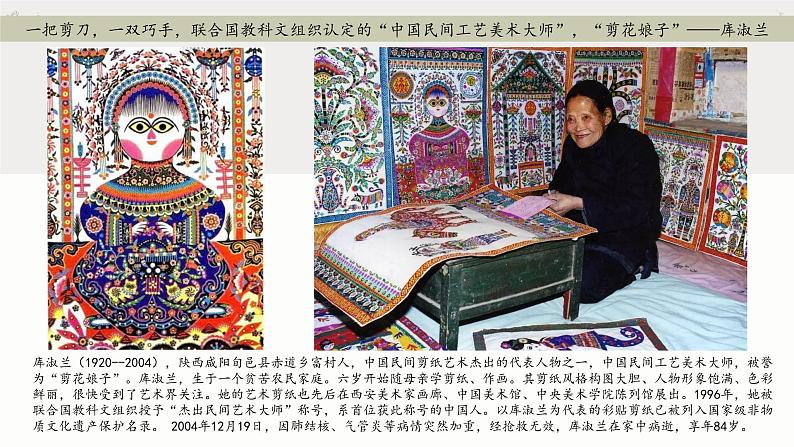 一把剪刀，一双巧手，联合国教科文组织认定的“中国民间工艺美术大师”，“剪花娘子”——库淑兰
库淑兰（1920--2004），陕西咸阳旬邑县赤道乡富村人，中国民间剪纸艺术杰出的代表人物之一，中国民间工艺美术大师，被誉
为“剪花娘子”。库淑兰，生于一个贫苦农民家庭。六岁开始随母亲学剪纸、作画。其剪纸风格构图大胆、人物形象饱满、色彩
鲜丽，很快受到了艺术界关注。她的艺术剪纸也先后在西安美术家画廊、中国美术馆、中央美术学院陈列馆展出。1996年，她被
联合国教科文组织授予“杰出民间艺术大师”称号，系首位获此称号的中国人。以库淑兰为代表的彩贴剪纸已被列入国家级非物
质文化遗产保护名录。 2004年12月19日，因肺结核、气管炎等病情突然加重，经抢救无效，库淑兰在家中病逝，享年84岁。